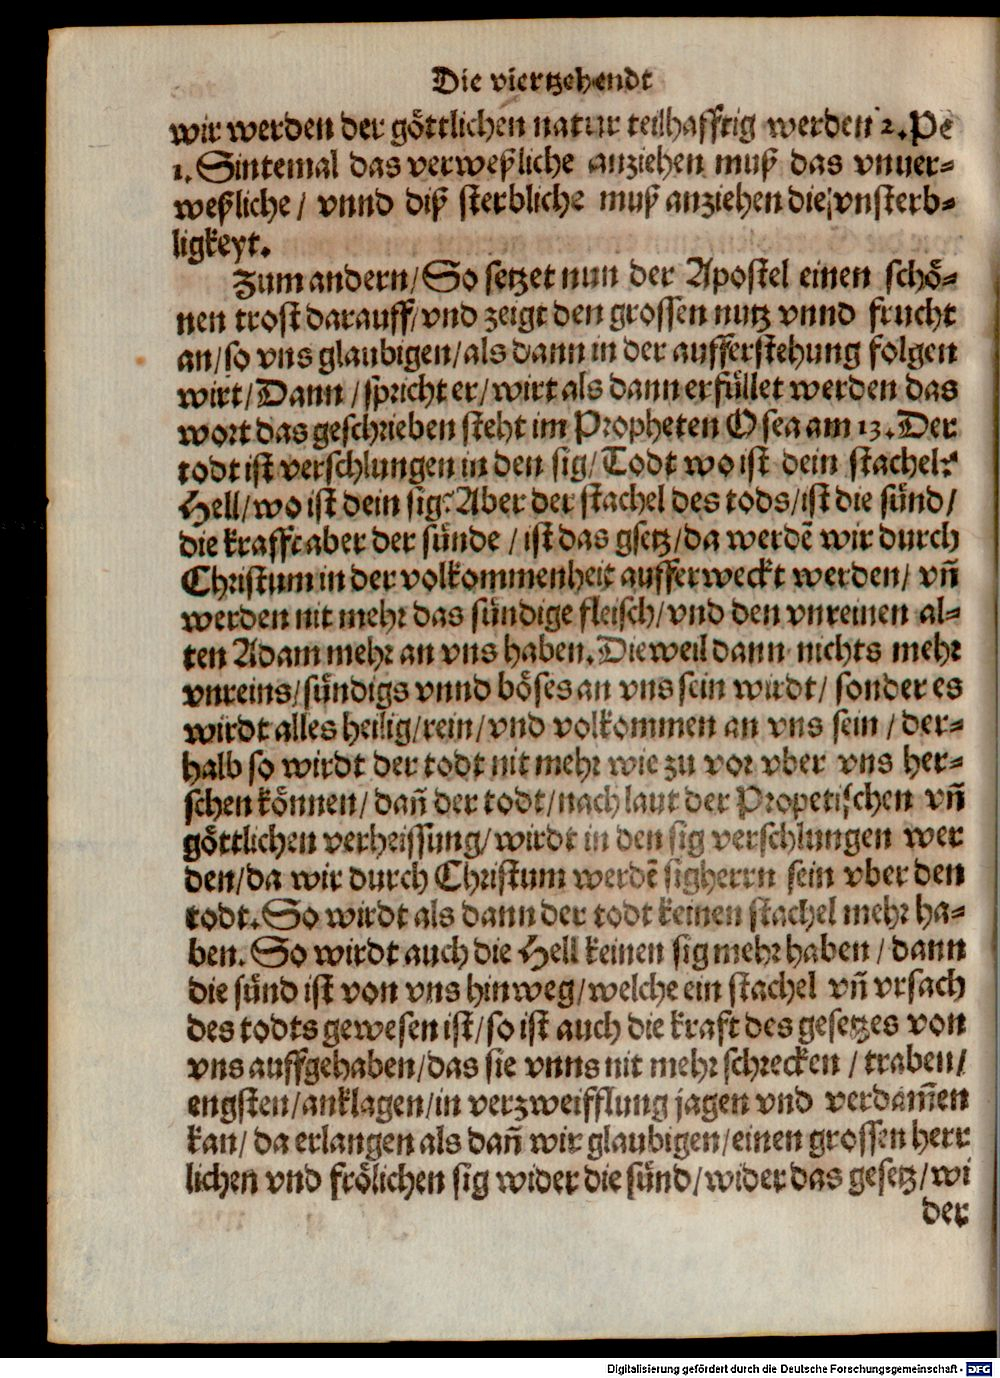 Die viertzehendt
wir werden der göttlichen natur teilhafftig werden 2. Pe
1. Sintemal das verweßliche anziehen muß das vnuer-
weßliche / vnnd diß sterbliche muß anziehen die vnsterb-
ligkeyt.
Zum andern / So setzet nun der Apostel einen schö-
nen trost darauff / vnd zeigt den grossen nutz vnnd frucht
an / so vns glaubigen / als dann in der aufferstehung folgen
wirt / Dann / spricht er / wirt als dann erfüllet werden das
wort das geschrieben steht im Propheten Osea am 13. Der
todt ist verschlungen in den sig / Todt wo ist dein stachel?
Hell / wo ist dein sig? Aber der stachel des tods / ist die sünd /
die krafft aber der sünde / ist das gsetz / da werdē wir durch
Christum in der volkommenheit aufferweckt werden / vñ
werden nit mehr das sündige fleisch / vnd den vnreinen al-
ten Adam mehr an vns haben. Dieweil dann nichts mehr
vnreins / sündigs vnnd böses an vns sein wirdt / sonder es
wirdt alles heilig / rein / vnd volkommen an vns sein / der-
halb so wirdt der todt nit mehr wie zu vor vber vns her-
schen können / dañ der todt / nach laut der Propetischen vñ
göttlichen verheissung / wirdt in den sig verschlungen wer
den / da wir durch Christum werdē sigherrn sein vber den
todt. So wirdt als dann der todt keinen stachel mehr ha-
ben. So wirdt auch die Hell keinen sig mehr haben / dann
die sünd ist von vns hinweg / welche ein stachel vñ vrsach
des todts gewesen ist / so ist auch die kraft des gesetzes von
vns auffgehaben / das sie vnns nit mehr schrecken / traben /
engsten / anklagen / in verzweifflung jagen vnd verdam̄en
kan / da erlangen als dañ wir glaubigen / einen grossen herr
lichen vnd frölichen sig wider die sünd / wider das gesetz / wi
der
Digitalisierung gefördert durch die Deutsche Forschungsgemeinschaft - DFG